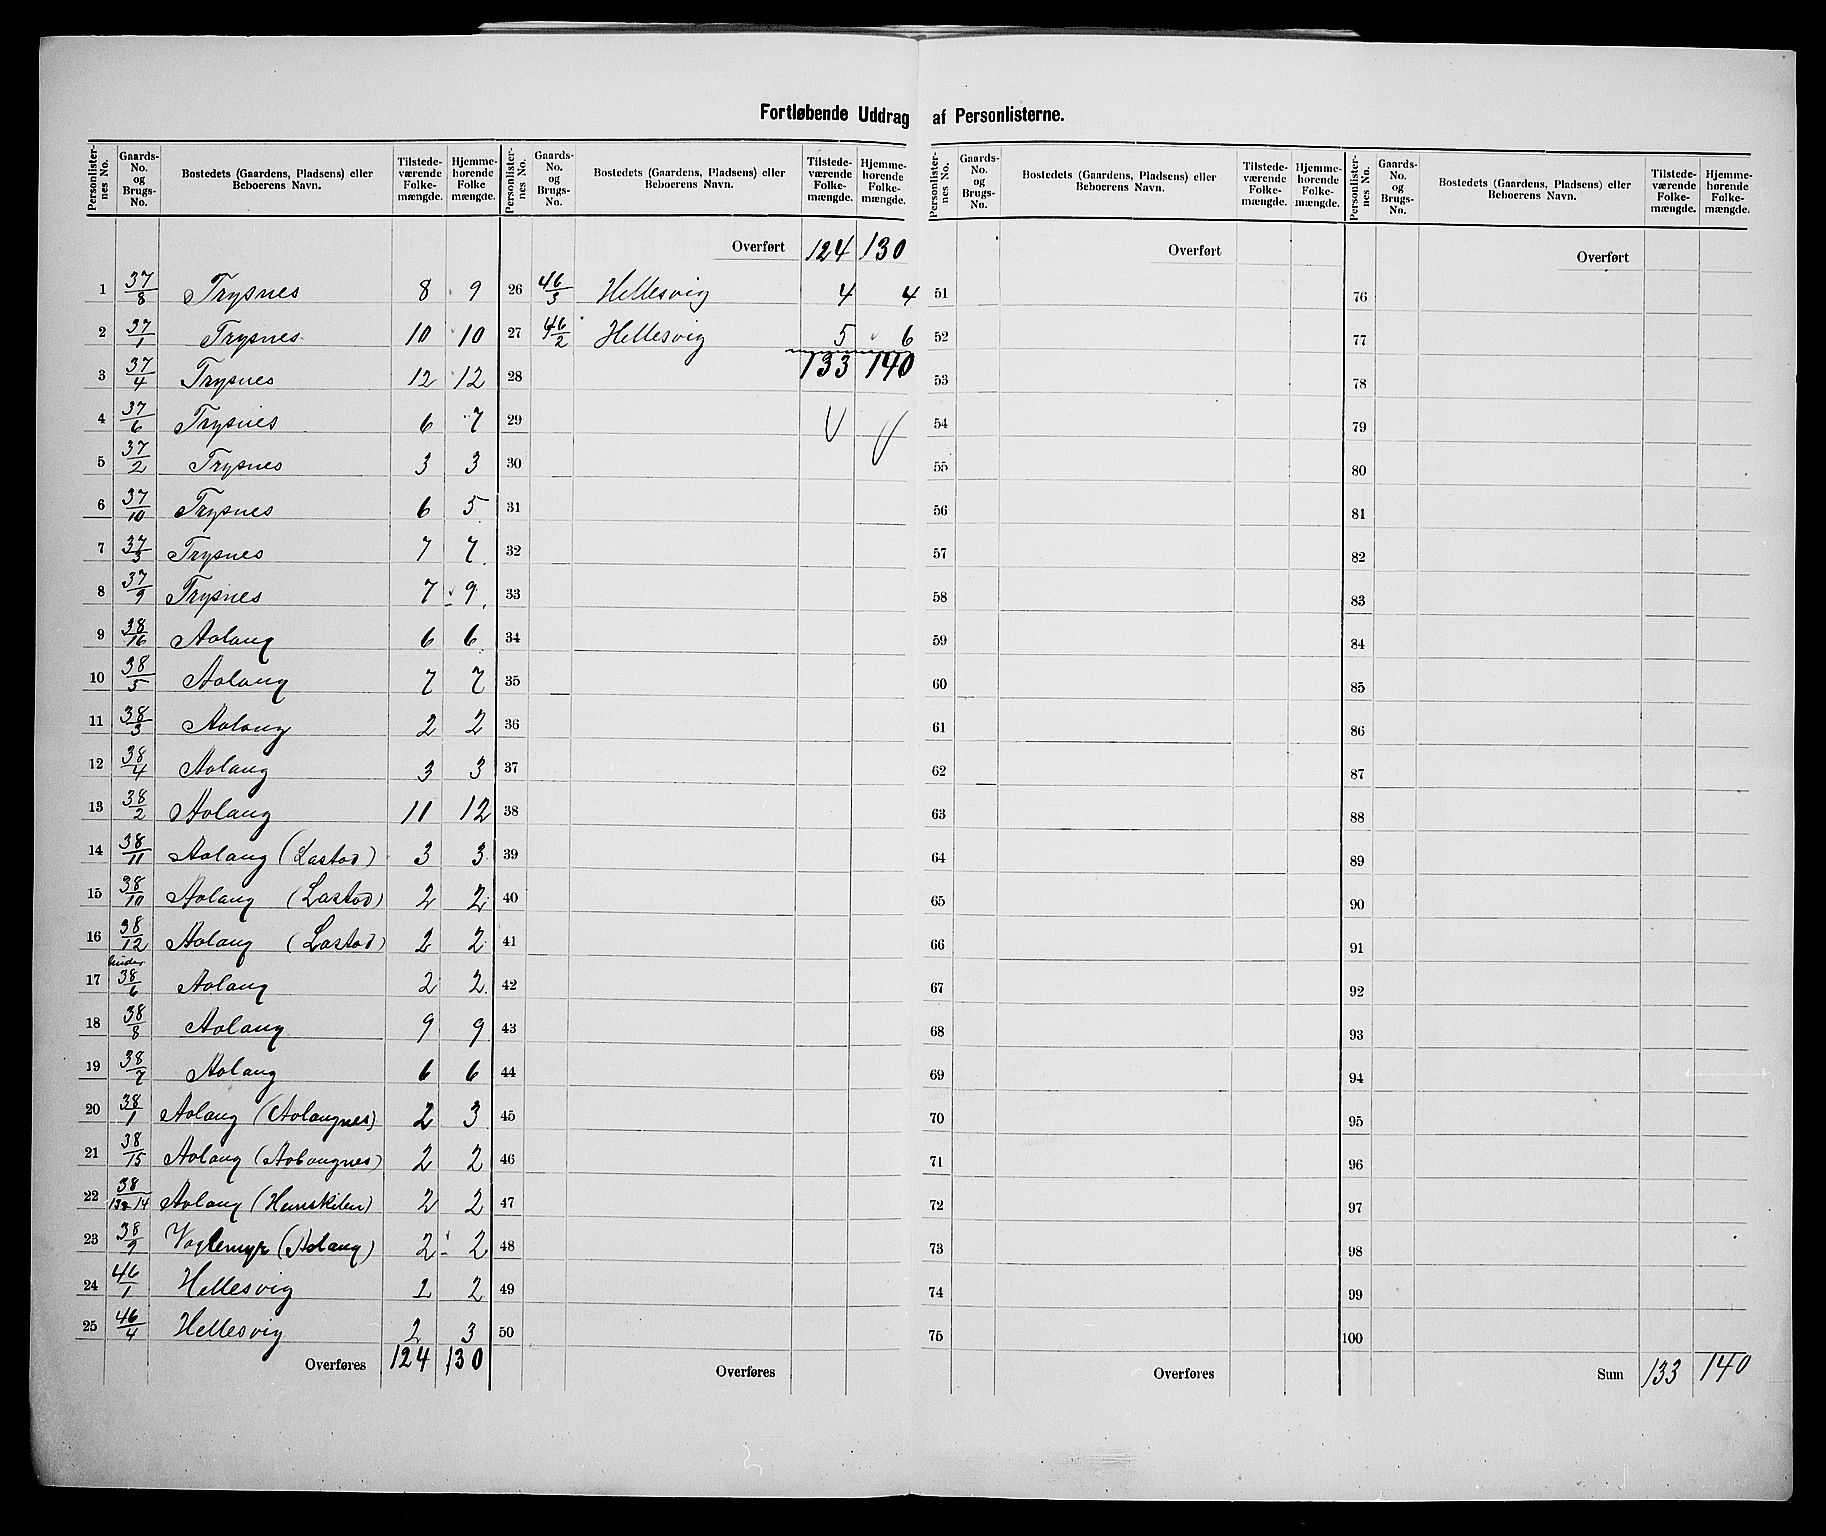 Fortløbende Uddrag af Personlisterne.
Personlister-nes No. | Gaards-No. og Brugs-No. | Bostedets (Gaardens, Pladsens) eller Beboerens Navn. | Tilstede-værende Folke-mængde. | Hjemme-hørende Folke mængde.
1 37/8 Trysnes 8 9
2 37/1 Trysnes 10 10
3 37/4 Trysnes 12 12
4 37/6 Trysnes 6 7
5 37/2 Trysnes 3 3
6 37/10 Trysnes 6 5
7 37/3 Trysnes 7 7
8 37/9 Trysnes 7 9
9 38/16 Aolang 6 6
10 38/5 Aolang 7 7
11 38/3 Aolang 2 2
12 38/4 Aolang 3 3
13 38/2 Aolang 11 12
14 38/11 Aolang (Lastad) 3 3
15 38/10 Aolang (Lastad) 2 2
16 38/12 Aolang (Lastad) 2 2
17 under 38/6 Aolang 2 2
18 38/8 Aolang 9 9
19 38/7 Aolang 6 6
20 38/1 Aolang (Aolangnes) 2 3
21 38/15 Aolang (Aolangnes) 2 2
22 38/13 & 14 Aolang 2 2
23 38/9 (Aolang) 2 2
24 46/1 Hellesvig 1 2
25 46/4 Hellesvig 2 3
Overføres 124 130
Personlister-nes No. | Gaards-No. og Brugs-No. | Bostedets (Gaardens, Pladsens) eller Beboerens Navn. | Tilstede-værende Folke-mængde. | Hjemme-hørende Folke-mængde.
Overført 124 130
26 46/3 Hellesvig 4 4
27 46/2 Hellesvig 5 6
28 133 140
29
30
31
32
33
34
35
36
37
38
39
40
41
42
43
44
45
46
47
48
49
50
Overføres
Personlister-nes No. | Gaards-No. og Brugs-No. | Bostedets (Gaardens, Pladsens) eller Beboerens Navn. | Tilstede-værende Folke-mængde. | Hjemme-hørende Folke-mængde.
Overført
51
52
53
54
55
56
57
58
59
60
61
62
63
64
65
66
67
68
69
70
71
72
73
74
75
Overføres
Personlister-nes No. | Gaards-No. og Brugs-No. | Bostedets (Gaardens, Pladsens) eller Beboerens Navn. | Tilstede-værende Folke-mængde. | Hjemme-hørende Folke-mængde.
Overført
76
77
78
79
80
81
82
83
84
85
86
87
88
89
90
91
92
93
94
95
96
97
98
99
100
Sum 133 140